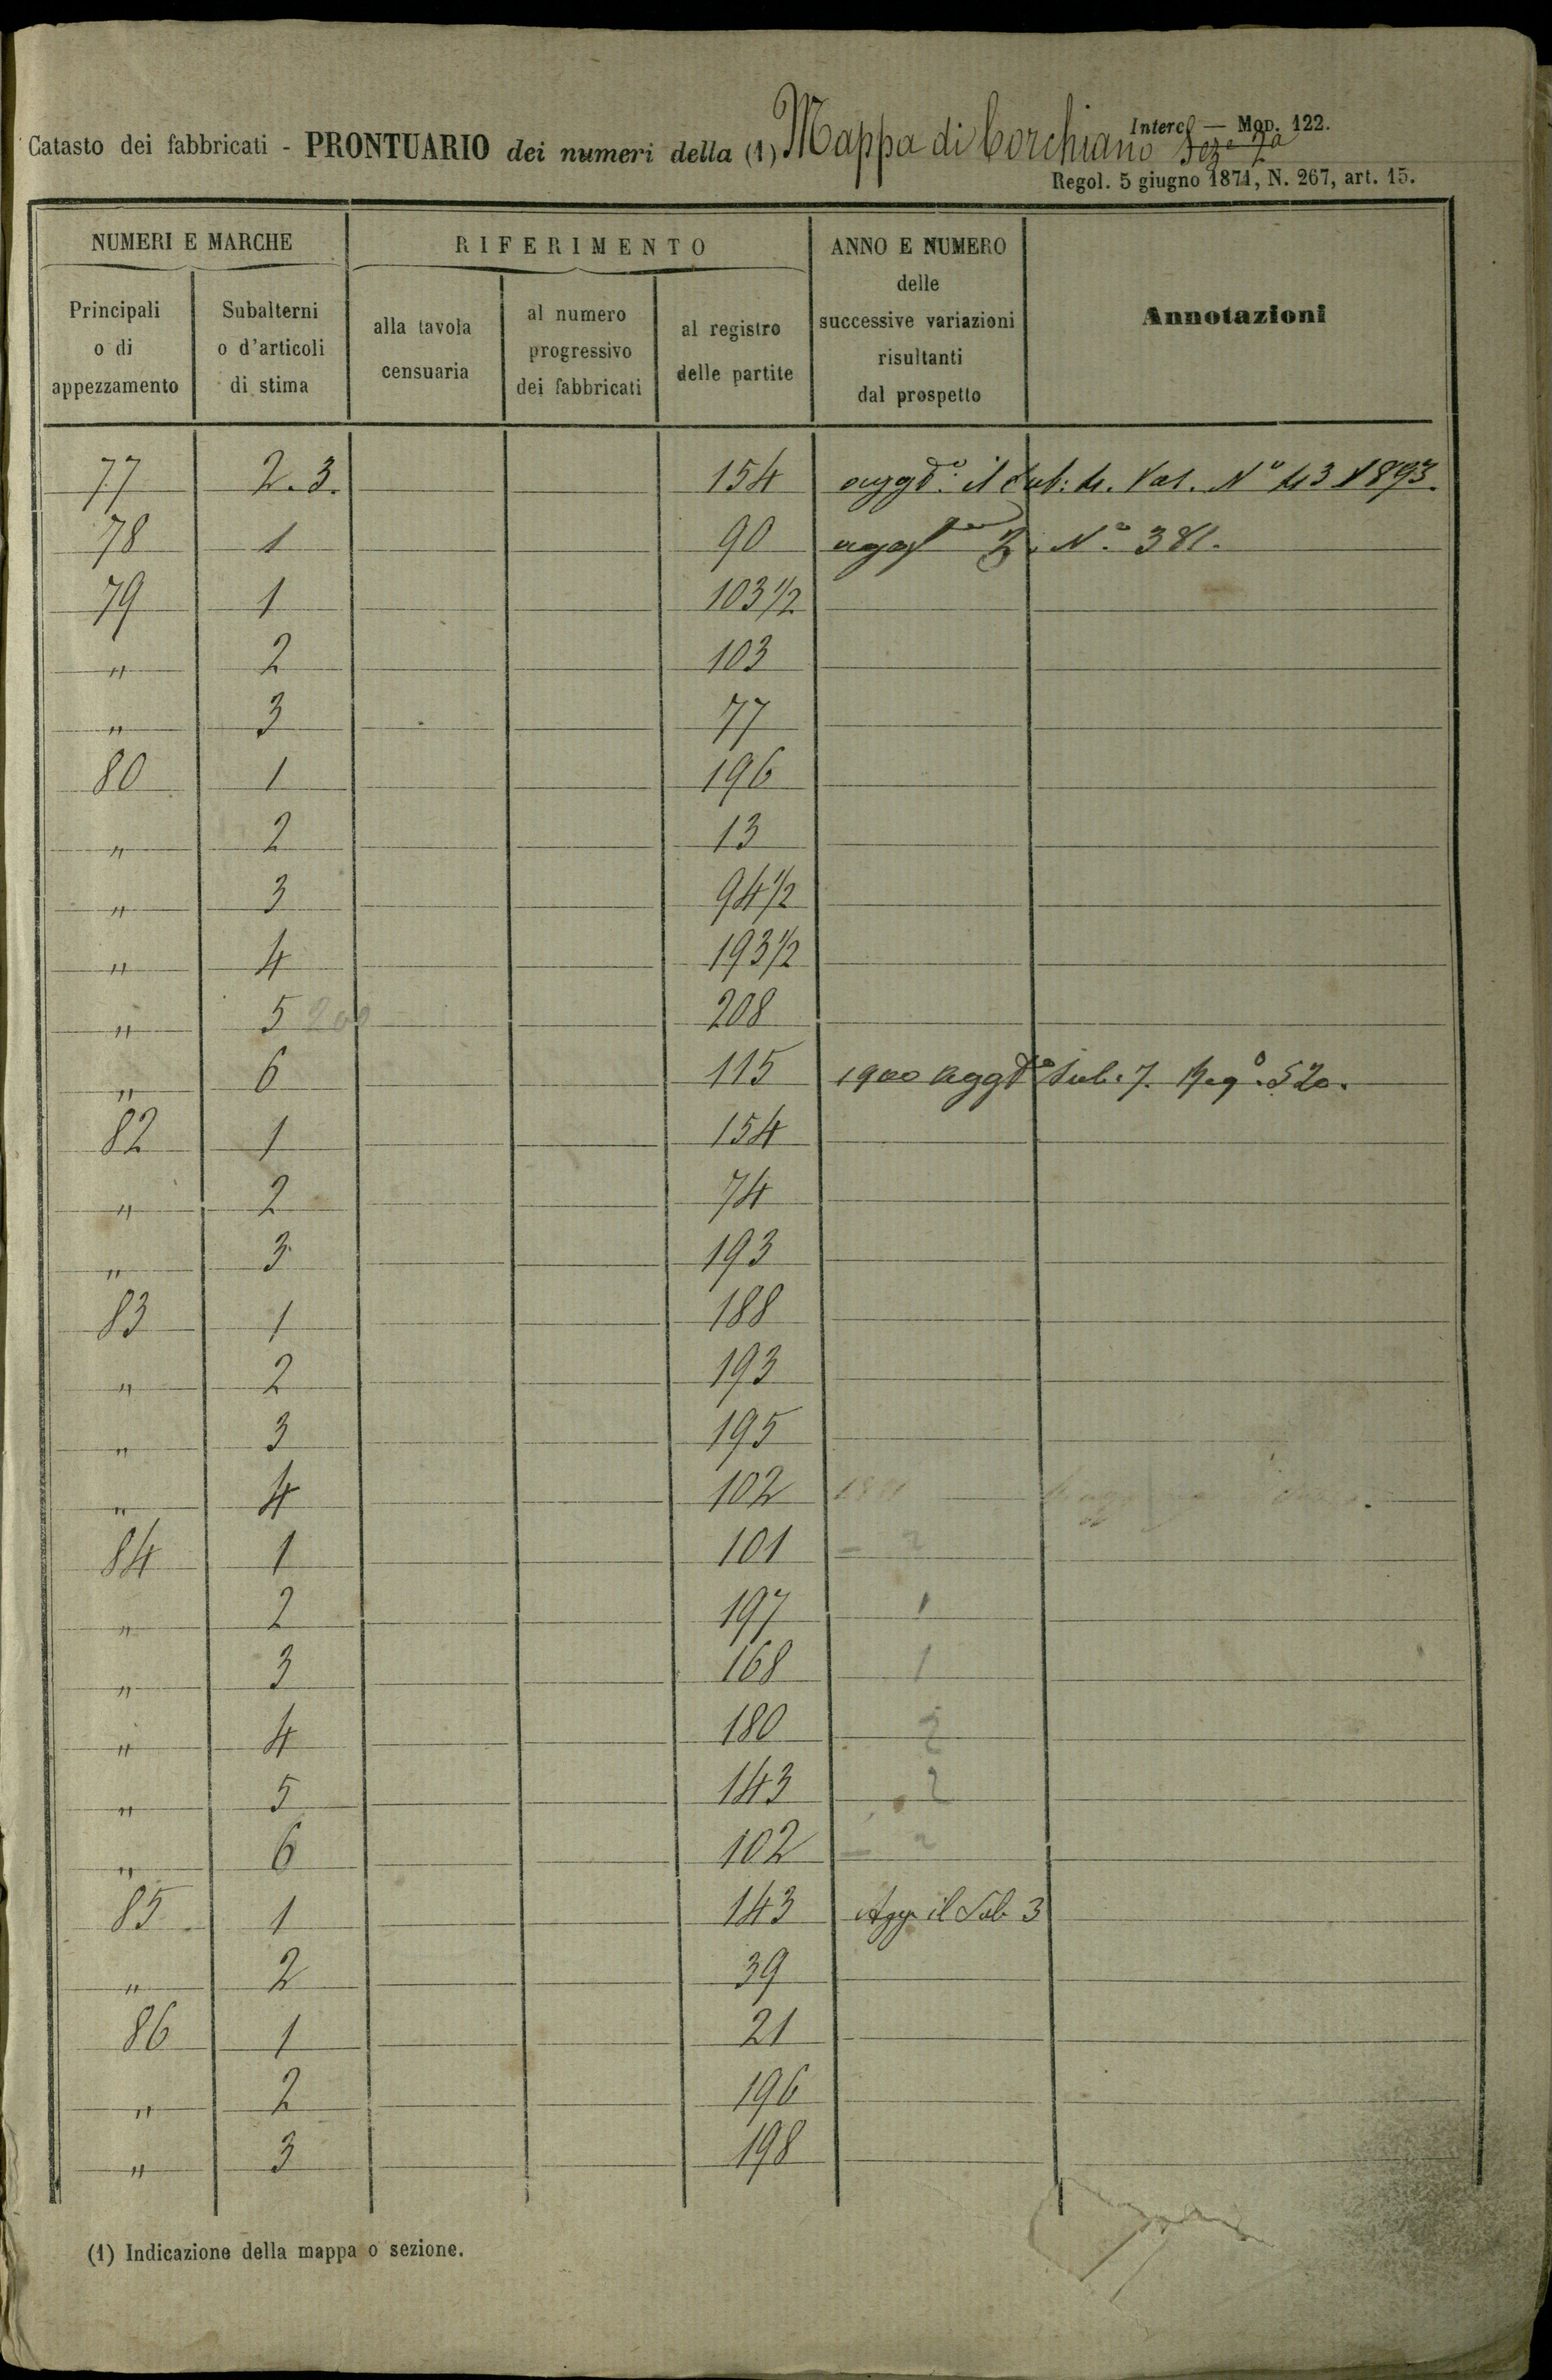 Intercl — Mod. 122.
Catasto dei fabbricati - PRONTUARIO dei numeri della (1) Mappa di Corchiano Sez.e
Regol. 5 giugno 1871, N. 267, art. 15.
NUMERI E MARCHE RIFERIMENTO ANNO E NUMERO delle successive variazioni risultanti dal prospetto Annotazioni
Principali o di appezzamento Subalterni o d'articoli di stima alla tavola censuaria al numero progressivo dei fabbricati al registro delle partite
77 2.3. 154 aggto il sub: 4. Nº 43 1893.
78 1 90 Nº 381.
79 1 103 1/2
" 2 103
" 3 77
80 1 196
" 2 13
" 3 94 1/2
" 4 193 1/2
" 5 200 208
" 6 115 1900 Aggto Sub. 7. Regº. 520.
82 1 154
" 2 74
" 3 193
83 1 188
" 2 193
" 3 195
" 4 102
84 1 101 2
" 2 197 1
" 3 168 1
" 4 180 2
" 5 143 2
" 6 102 2
85 1 143 Agg. il Sub 3
" 2 39
86 1 21
" 2 196
" 3 198
(1) Indicazione della mappa o sezione.